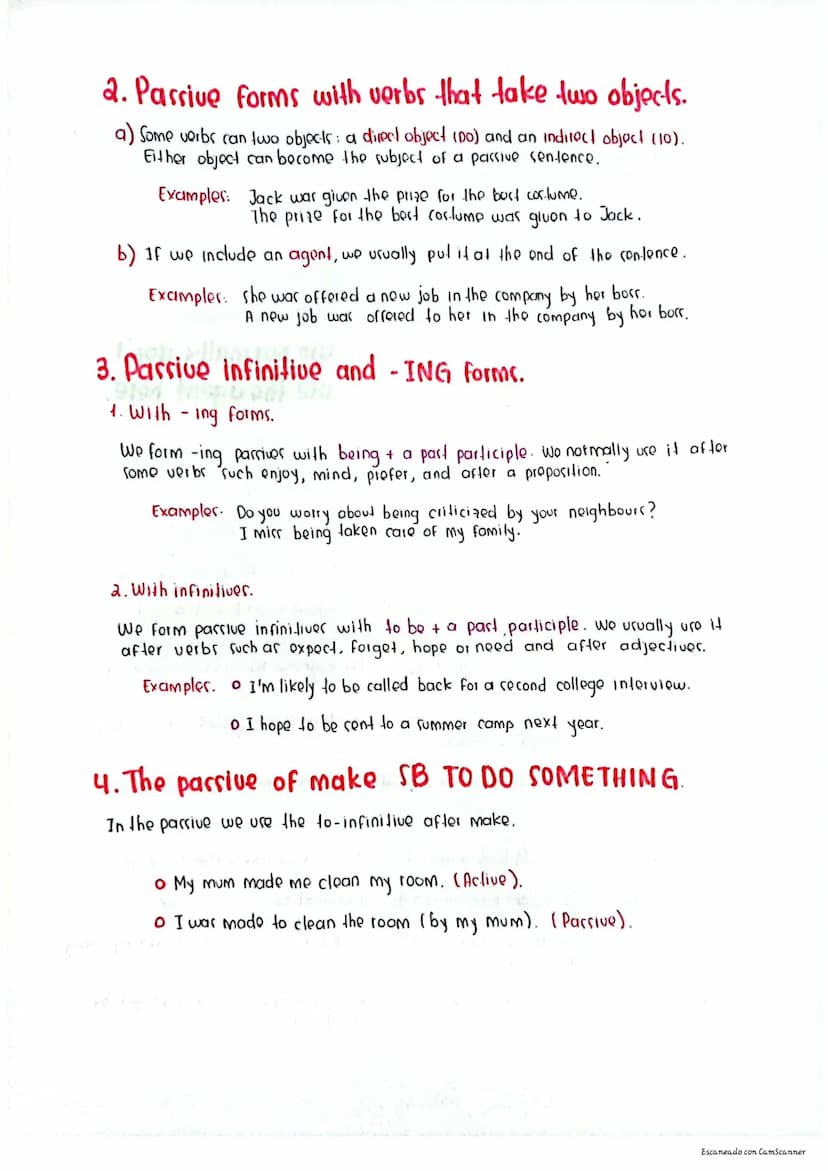 2. Passive forms with verbs that take two objects.
a) Some verbs can two objects: a direct object (DO) and an indirect object (IO).
Either object can become the subject of a passive sentence.
Examples: Jack was given the prize for the best costume.
The prize for the best costume was given to Jack.
b) If we include an agent, we usually put it at the end of the sentence.
Examples: She was offered a new job in the company by her boss.
A new job was offered to her in the company by her boss.
3. Passive infinitive and -ING forms.
1. With -ing forms.
We form -ing passives with being + a past participle. We normally use it after
some verbs such enjoy, mind, prefer, and after a preposition.
Examples. Do you worry about being criticized by your neighbours?
I miss being taken care of my family.
2. With infinitives.
We form passive infinitives with to be + a past participle. We usually use it
after verbs such as expect, forget, hope or need and after adjectives.
Examples. o I'm likely to be called back for a second college interview.
o I hope to be sent to a summer camp next year.
4. The passive of make SB TO DO SOMETHING.
In the passive we use the to-infinitive after make.
o My mum made me clean my room. (Active).
o I was made to clean the room (by my mum). (Passive).
Escaneado con CamScanner